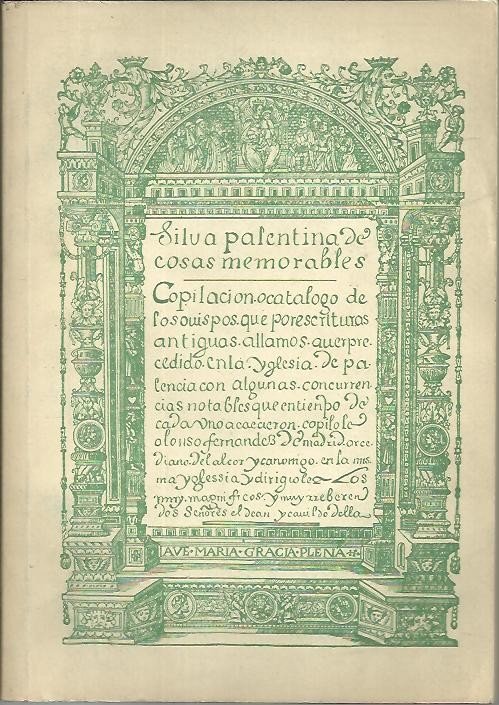 Silva palentina de
cosas memorables
Copilacion. o catalogo de
los ouispos. que por escrituras
antiguas. allamos. auer pre
cedido. en la. yglesia. de pa
lencia con algunas. concurren
cias notables que en tienpo de
cada vno acaecieron. copilole
alonso fernandes de madrid. arce
diano. del alcor y canonigo. en la mis
ma yglessia y dirigiole a Los
muy. magnificos. y muy rreberen
dos señores el dean y cauildo della
AVE · MARIA · GRACIA · PLENA